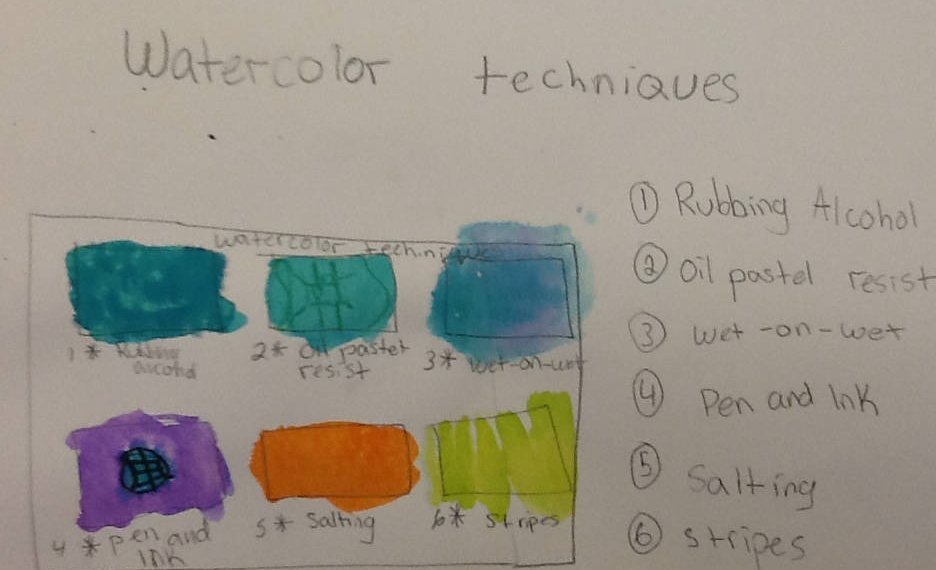 Watercolor techniques
① Rubbing Alcohol
② Oil pastel resist
③ Wet-on-wet
④ Pen and Ink
⑤ Salting
⑥ Stripes
watercolor technique
1 * Rubbing
alcohol
2* Oil pastel
resist
3* wet-on-wet
4 * pen and
Ink
5 * Salting
6* Stripes